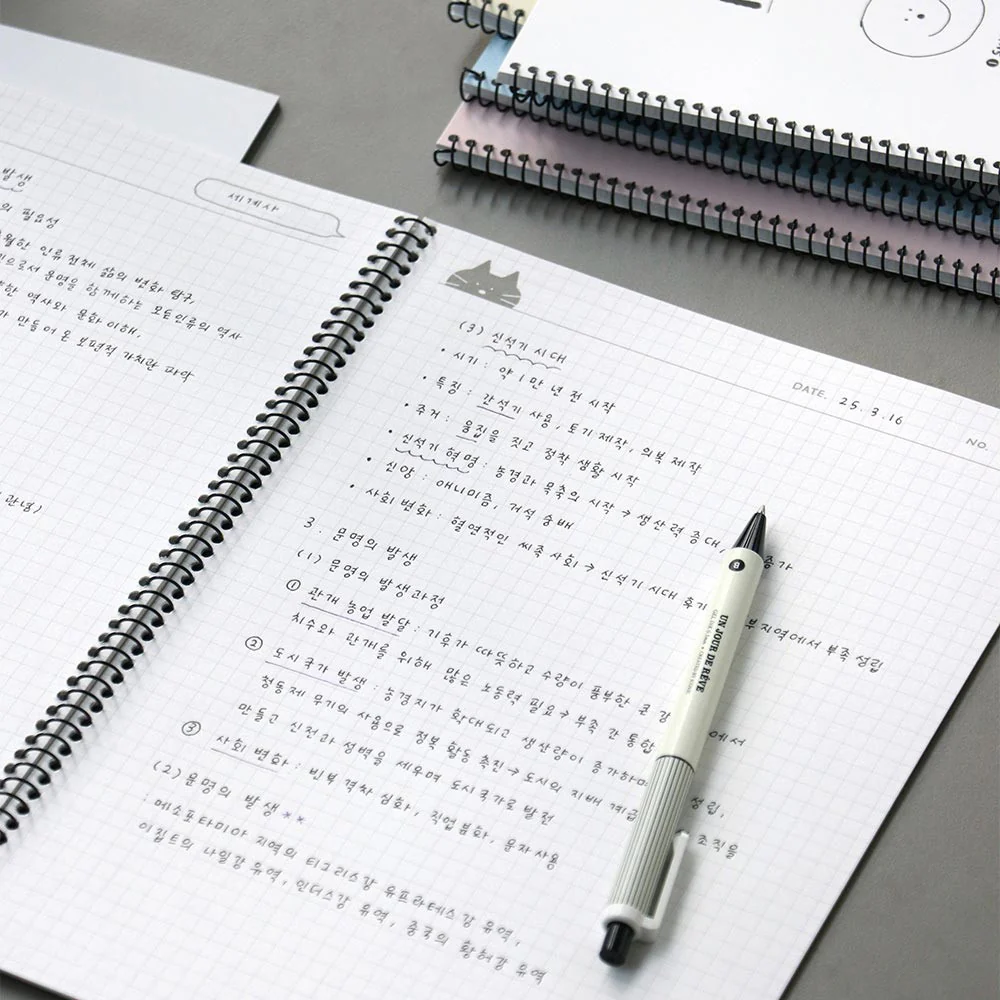 발생
의 필요성
인류 전체 삶의 변화 탐구,
으로서 문명을 함께하는 모든 인류의 역사
한 역사와 문화 이해,
가 만들어 온 보편적 가치관 파악
관념)
세계사
DATE. 25.3.16
NO.
(3) 신석기 시대
• 시기 : 약 1만 년 전 시작
• 특징 : 간석기 사용, 토기 제작, 의복 제작
• 주거 : 움집을 짓고 정착 생활 시작
• 신석기 혁명 : 농경과 목축의 시작 → 생산력 증대, 증가
• 신앙 : 애니미즘, 거석 숭배
• 사회 변화 : 혈연적인 씨족 사회 → 신석기 시대 후기 부 지역에서 부족 성립
3. 문명의 발생
(1) 문명의 발생과정
① 관개 농업 발달 : 기후가 따뜻하고 수량이 풍부한 큰 강 에서
치수와 관개를 위해 많은 노동력 필요 → 부족 간 통합
② 도시국가 발생 : 농경지가 확대되고 생산량이 증가하며 성립,
청동제 무기의 사용으로 정복 활동 촉진 → 도시의 지배 계급 조직을
만들고 신전과 성벽을 세우며 도시국가로 발전
③ 사회 변화 : 빈부 격차 심화, 직업 분화, 문자 사용
(2) 문명의 발생 **
: 메소포타미아 지역의 티그리스강 유프라테스강 유역,
이집트의 나일강 유역, 인더스강 유역, 중국의 황허강 유역
8
UN JOUR DE RÊVE